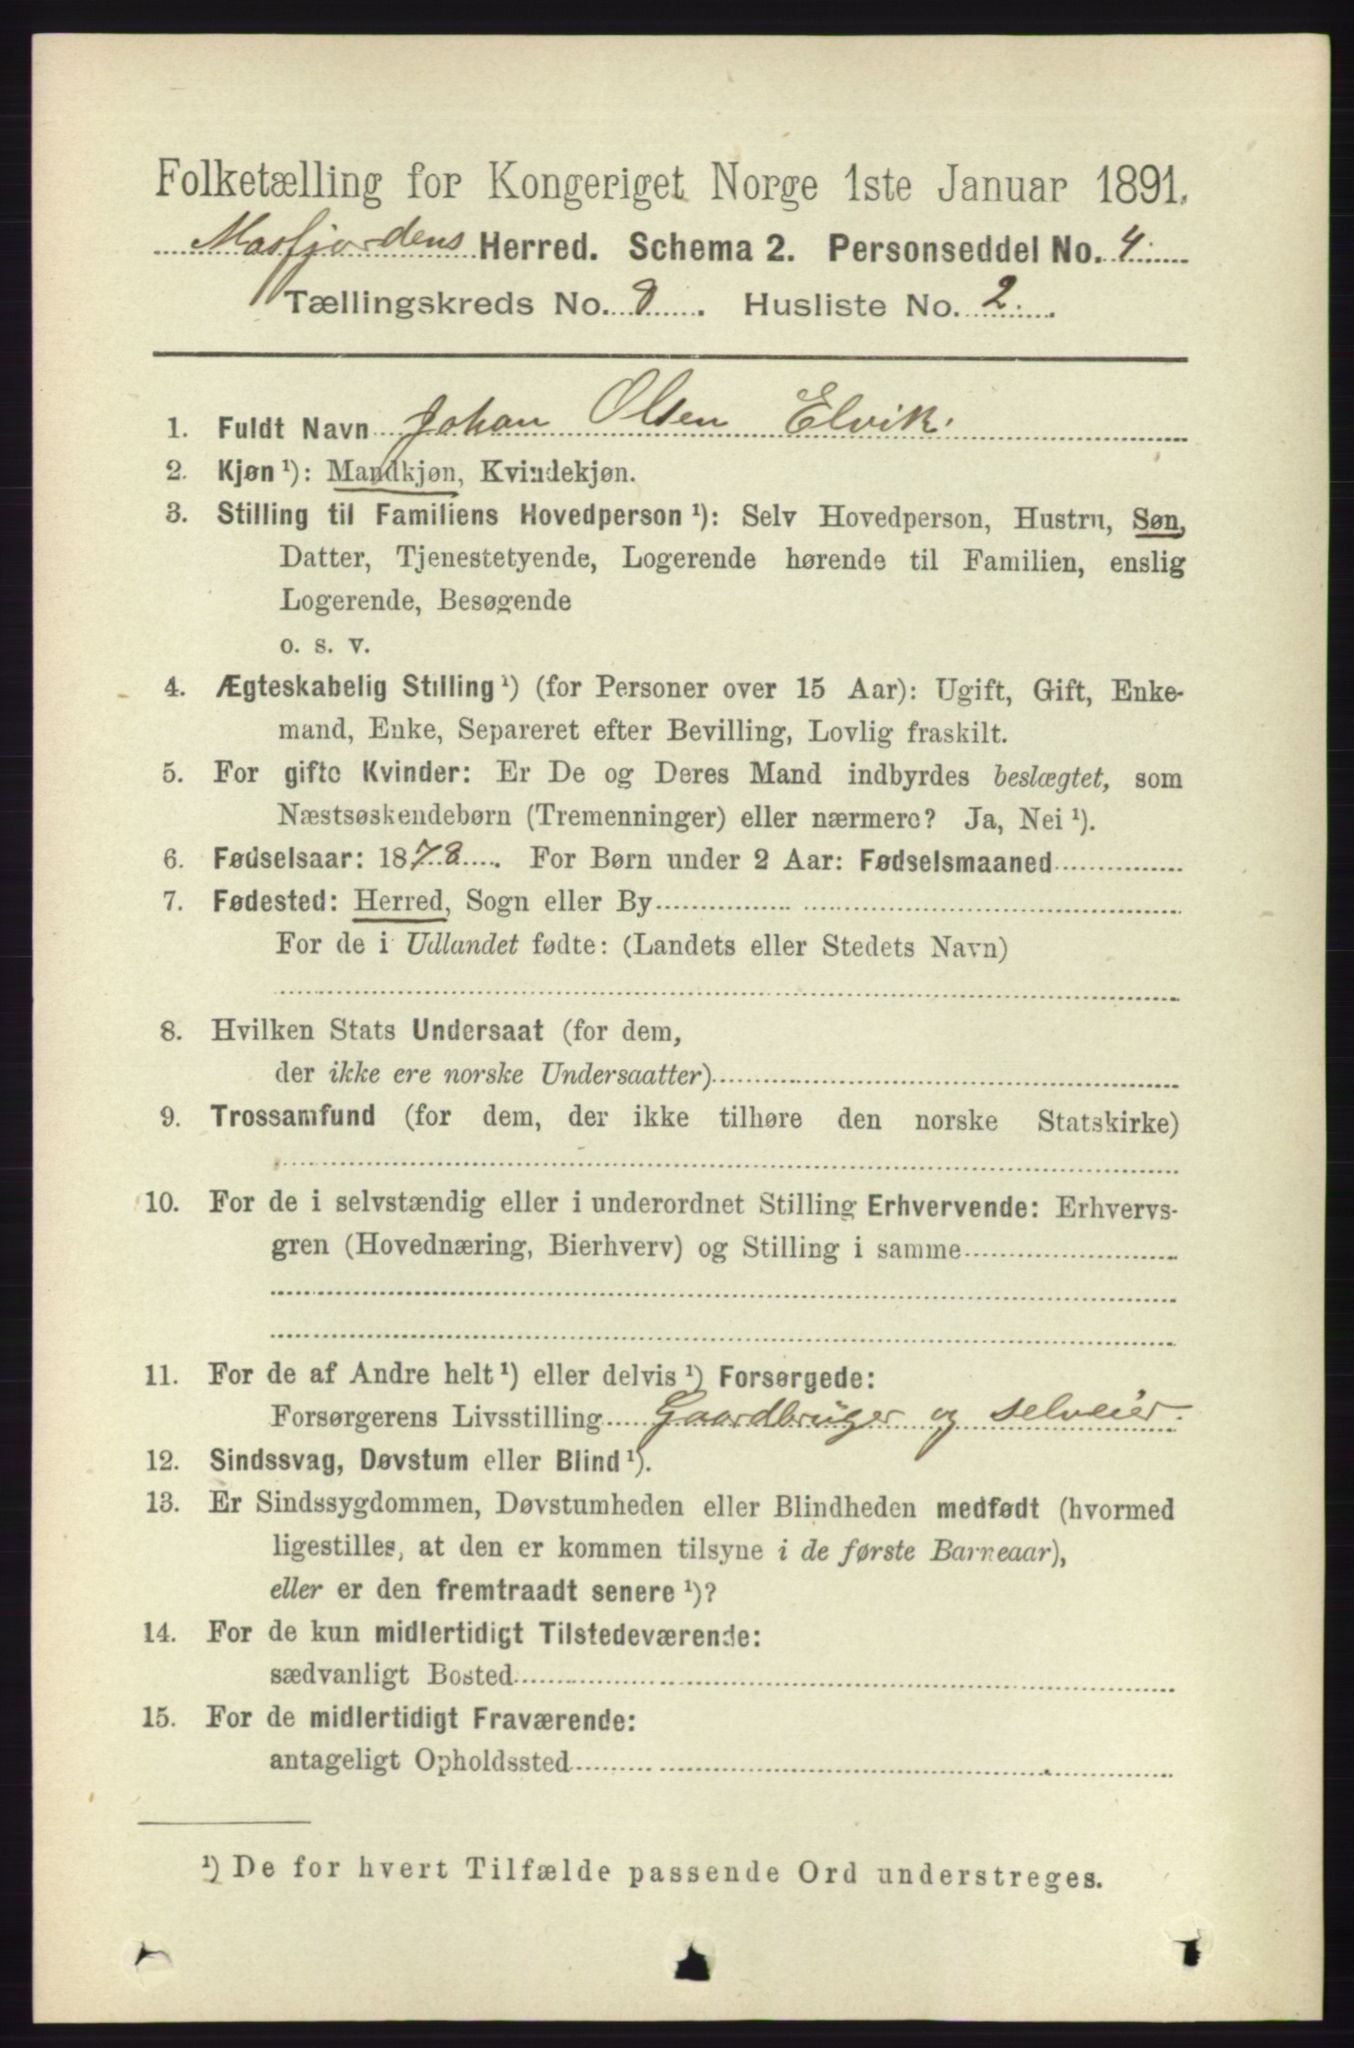 Folketælling for Kongeriget Norge 1ste Januar 1891.
Masfjordens Herred. Schema 2. Personseddel No. 4.
Tællingskreds No. 8. Husliste No. 2.
1. Fuldt Navn Johan Olsen Elvik.
2. Kjøn ¹): Mandkjøn, Kvindekjøn.
3. Stilling til Familiens Hovedperson ¹): Selv Hovedperson, Hustru, Søn,
Datter, Tjenestetyende, Logerende hørende til Familien, enslig
Logerende, Besøgende
o. s. v.
4. Ægteskabelig Stilling ¹) (for Personer over 15 Aar): Ugift, Gift, Enke-
mand, Enke, Separeret efter Bevilling, Lovlig fraskilt.
5. For gifte Kvinder: Er De og Deres Mand indbyrdes beslægtet, som
Næstsøskendebørn (Tremenninger) eller nærmere? Ja, Nei ¹).
6. Fødselsaar: 1878. For Børn under 2 Aar: Fødselsmaaned
7. Fødested: Herred, Sogn eller By
For de i Udlandet fødte: (Landets eller Stedets Navn)
8. Hvilken Stats Undersaat (for dem,
der ikke ere norske Undersaatter)
9. Trossamfund (for dem, der ikke tilhøre den norske Statskirke)
10. For de i selvstændig eller i underordnet Stilling Erhvervende: Erhvervs-
gren (Hovednæring, Bierhverv) og Stilling i samme
11. For de af Andre helt ¹) eller delvis ¹) Forsørgede:
Forsørgerens Livsstilling Gaardbruger og selveier.
12. Sindssvag, Døvstum eller Blind ¹).
13. Er Sindssygdommen, Døvstumheden eller Blindheden medfødt (hvormed
ligestilles, at den er kommen tilsyne i de første Barneaar),
eller er den fremtraadt senere ¹)?
14. For de kun midlertidigt Tilstedeværende:
sædvanligt Bosted
15. For de midlertidigt Fraværende:
antageligt Opholdssted
¹) De for hvert Tilfælde passende Ord understreges.